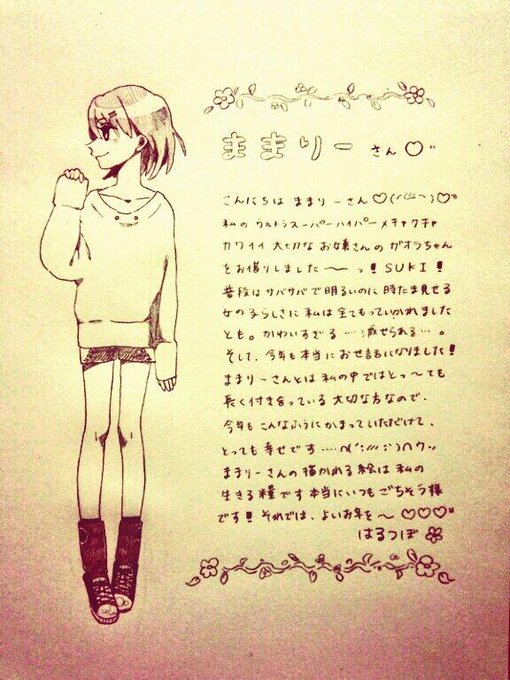 ままりーさん♡"
こんにちは ままりーさん♡
私の ウルトラスーパーハイパーメチャクチャ
カワイイ 大切な お嬢さんの ガオラちゃん
をお借りしました〜っ!SUKI!
普段は サバサバで 明るいのに 時たま見せる
女の子らしさに 私は全てもっていかれました
とも。かわいすぎる…滅せられる…。
そして、今年も本当にお世話になりました!
ままりーさんとは 私の中ではとっ〜ても
長く付き合っている 大切な方なので、
今年も こんなふうに かまって いただけて、
とっても 幸せです
ままりーさんの 描かれる絵は 私の
生きる糧です 本当にいつもごちそう様
です! それでは、よいお年を〜♡♡♡"
はるつぼ